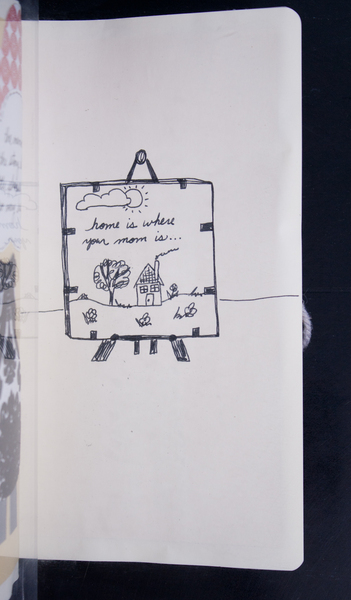 home is where
your mom is...